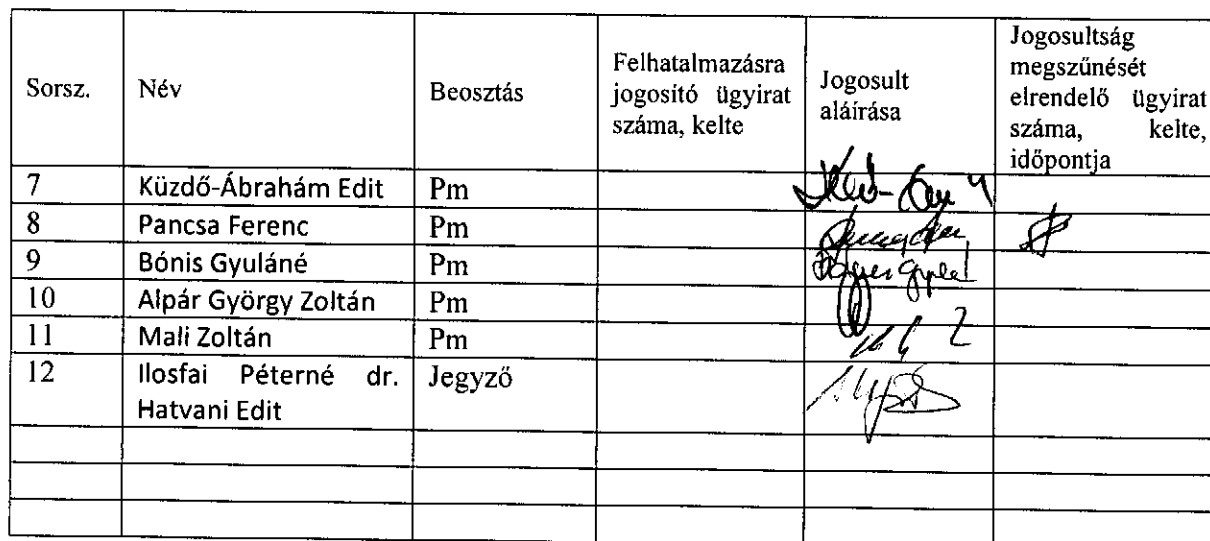 Sorsz.
Név
Beosztás
Felhatalmazásra
jogosító ügyirat
száma, kelte
Jogosult
aláírása
Jogosultság
megszűnését
elrendelő ügyirat
száma, kelte,
időpontja
7 Küzdő-Ábrahám Edit Pm
8 Pancsa Ferenc Pm
9 Bónis Gyuláné Pm
10 Alpár György Zoltán Pm
11 Mali Zoltán Pm
12 Ilosfai Péterné dr. Jegyző
Hatvani Edit